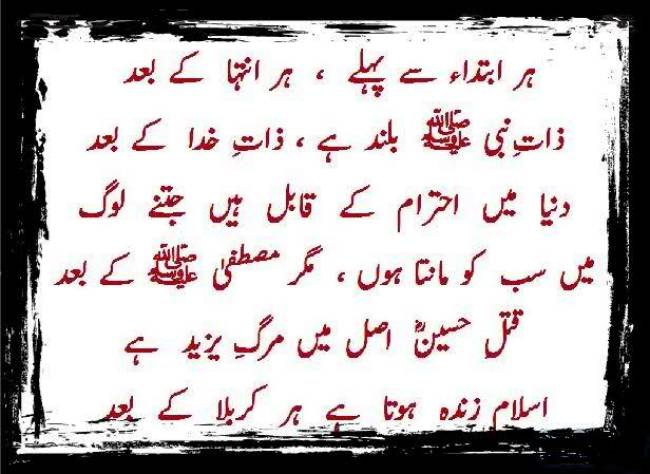 ہر ابتداء سے پہلے ، ہر انتہا کے بعد
ذاتِ نبی ﷺ بلند ہے ، ذاتِ خدا کے بعد
دنیا میں احترام کے قابل ہیں جتنے لوگ
میں سب کو مانتا ہوں ، مگر مصطفیٰ ﷺ کے بعد
قتلِ حسینؓ اصل میں مرگِ یزید ہے
اسلام زندہ ہوتا ہے ہر کربلا کے بعد